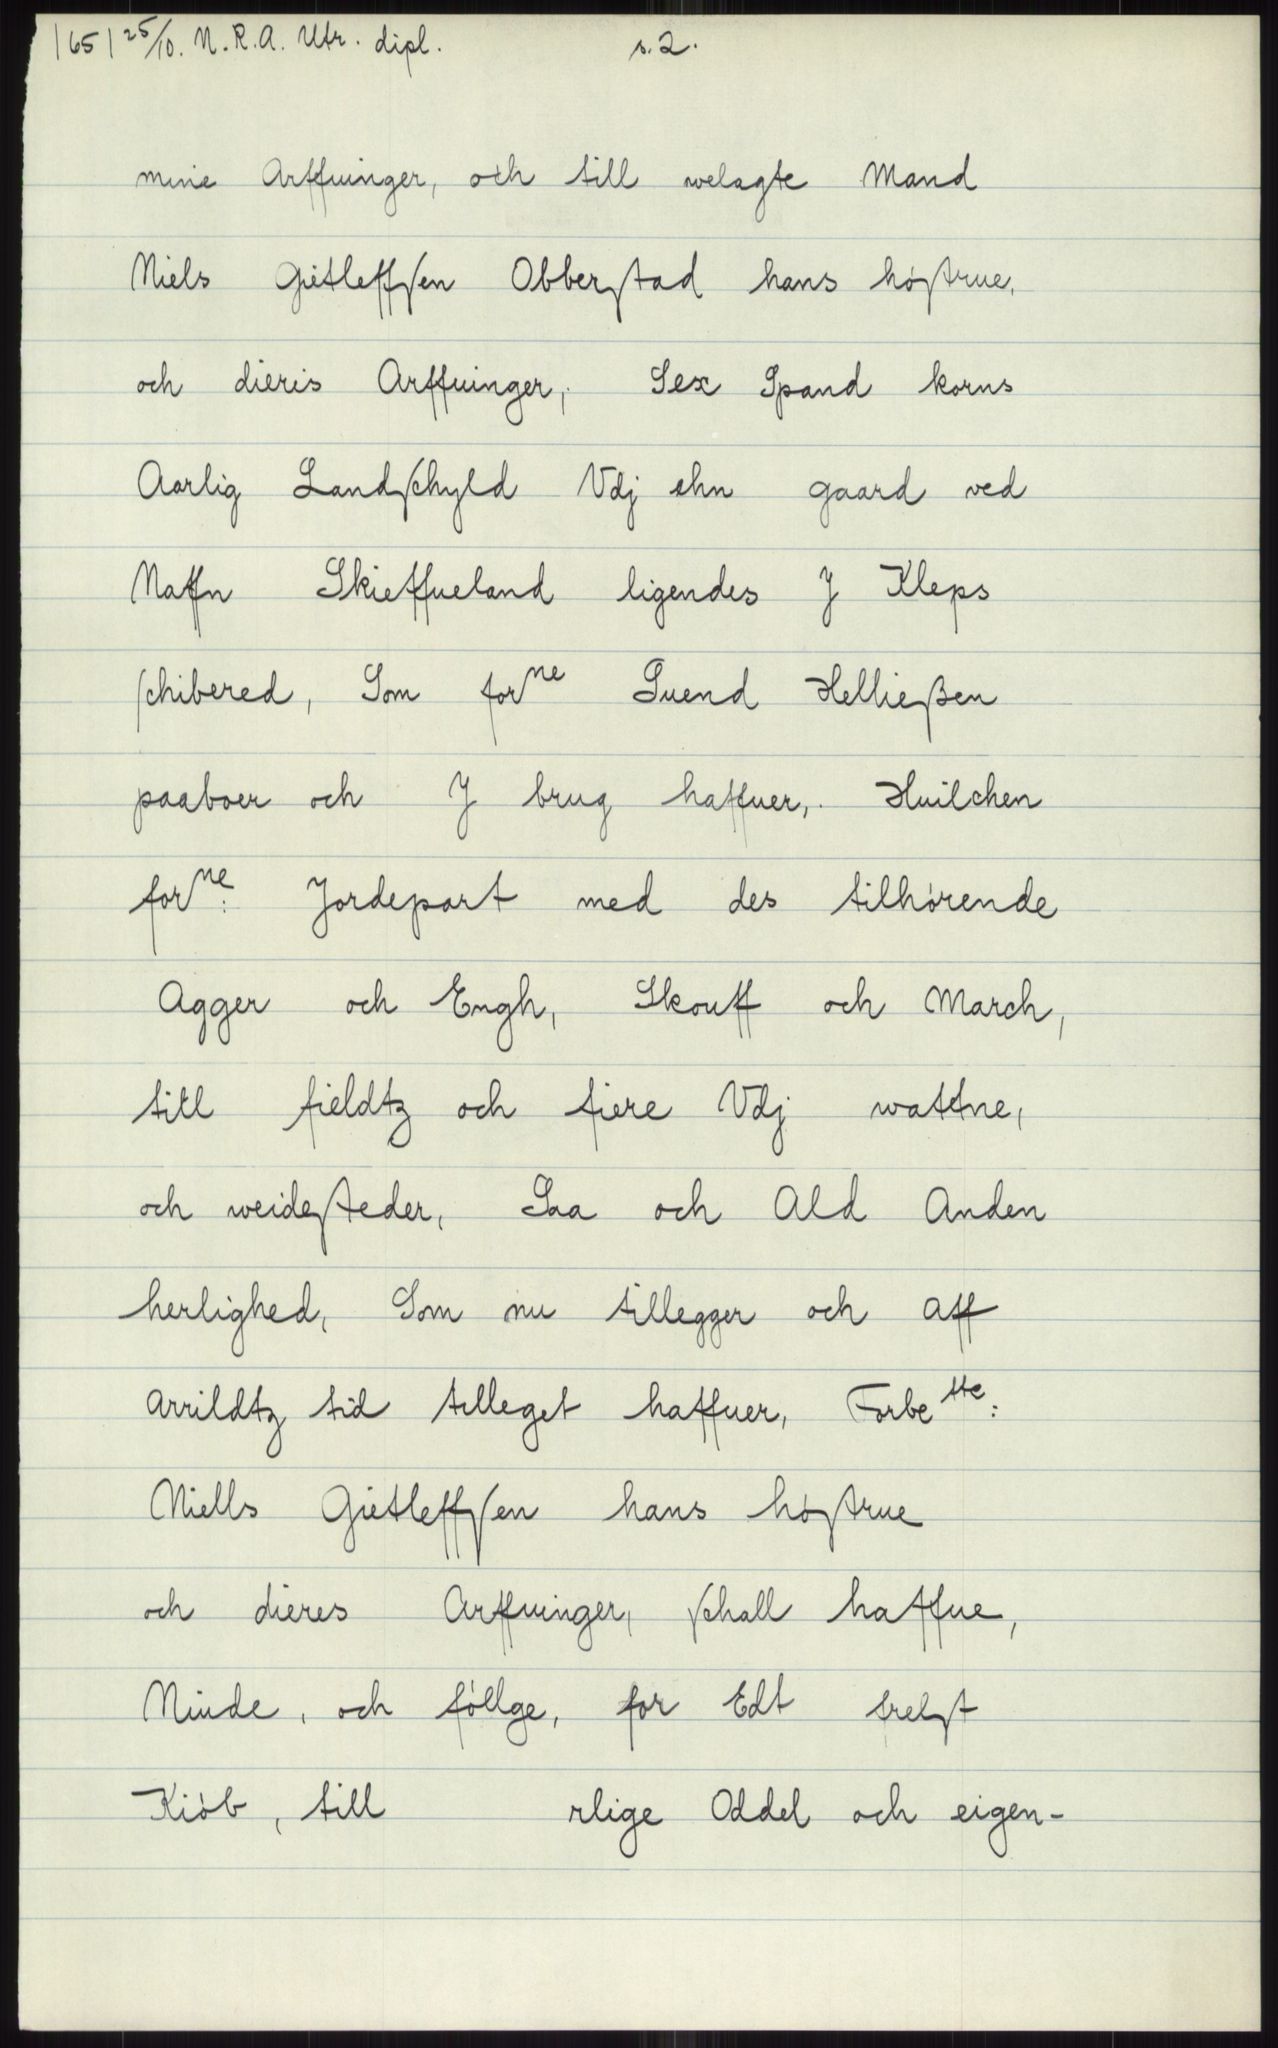 1651 25/10. N.R.A. Utr. dipl. s. 2.
mine Arffuinger, och till welagte Mand
Niels Gietleffsen Obberstad hans høstrue,
och dieris Arffuinger, Sex Spand korns
Aarlig Landschyld Vdj ehn gaard ved
Naffn Skieffueland ligendes J Kleps
schibered, Som forne Suend Helließen
paaboer och J brug haffuer, Huilchen
forne: Jordepart med des tilhørende
Agger och Engh, Skouff och March,
till fieldtz och fiere Vdj wattne,
och weidesteder, Saa och Ald Anden
herlighed, Som nu tillegger och aff
Arrildtz tid tilleget haffuer, Forbette:
Niells Gietleffsen hans høstrue
och dieres Arffuinger, schall haffue,
Niude, och föllge, for Edt frelst
Kiöb, till rlige Oddel och eigen-